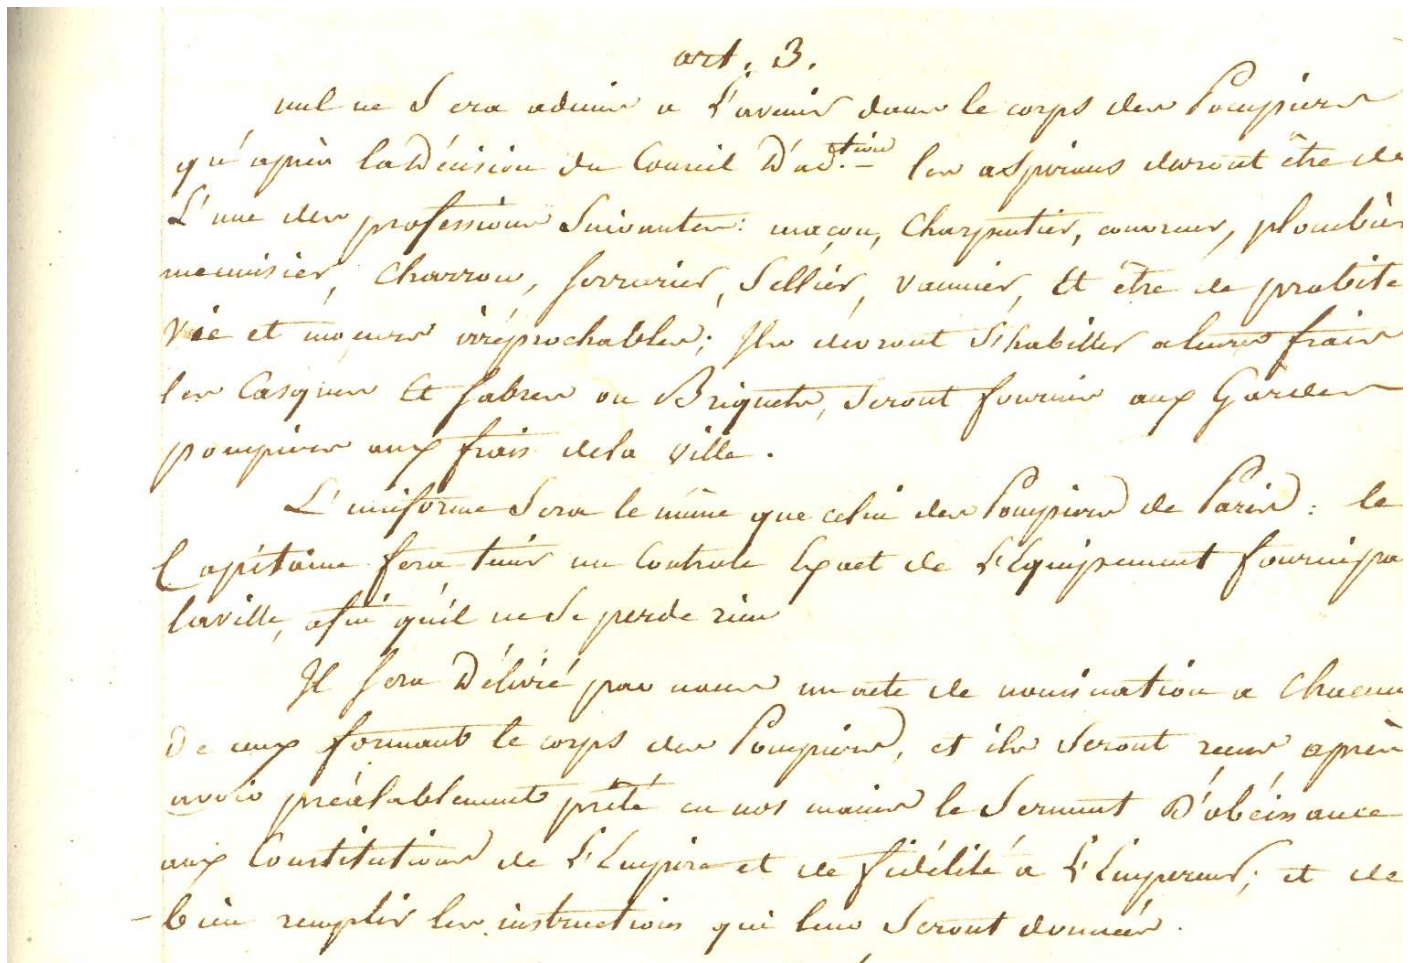 art. 3.
nul ne Sera admis a L'avenir dans le corps des Pompiers
qu'après la Décision du Conseil D'ad.tion les aspirans devront être de
L'une des professions Suivantes: maçon, Charpentier, couvreur, plombier
menuisier, Charron, serrurier, Sellier, vannier, Et être de probité
vie et moeurs irréprochables; Ils devront S'habiller a leurs frais
les Casques Et Sabres ou Briquets, Seront fournis aux Gardes
pompiers aux frais dela ville.
L'uniforme Sera le même que celui des Pompiers de Paris: le
Capitaine fera tenir un Controle Exact de L'Equipement fourni pa
laville, afin qu'il ne Se perde rien
Il Sera Délivré par nous un acte de nomination a Chacun
De ceux formant le corps des Pompiers, et ils Seront reçus après
avoir préalablement prêté en nos mains le Serment D'obéissance
aux Constitutions de L'Empire et de fidélité à L'Empereur; et de
bien remplir les instructions qui leur Seront données.